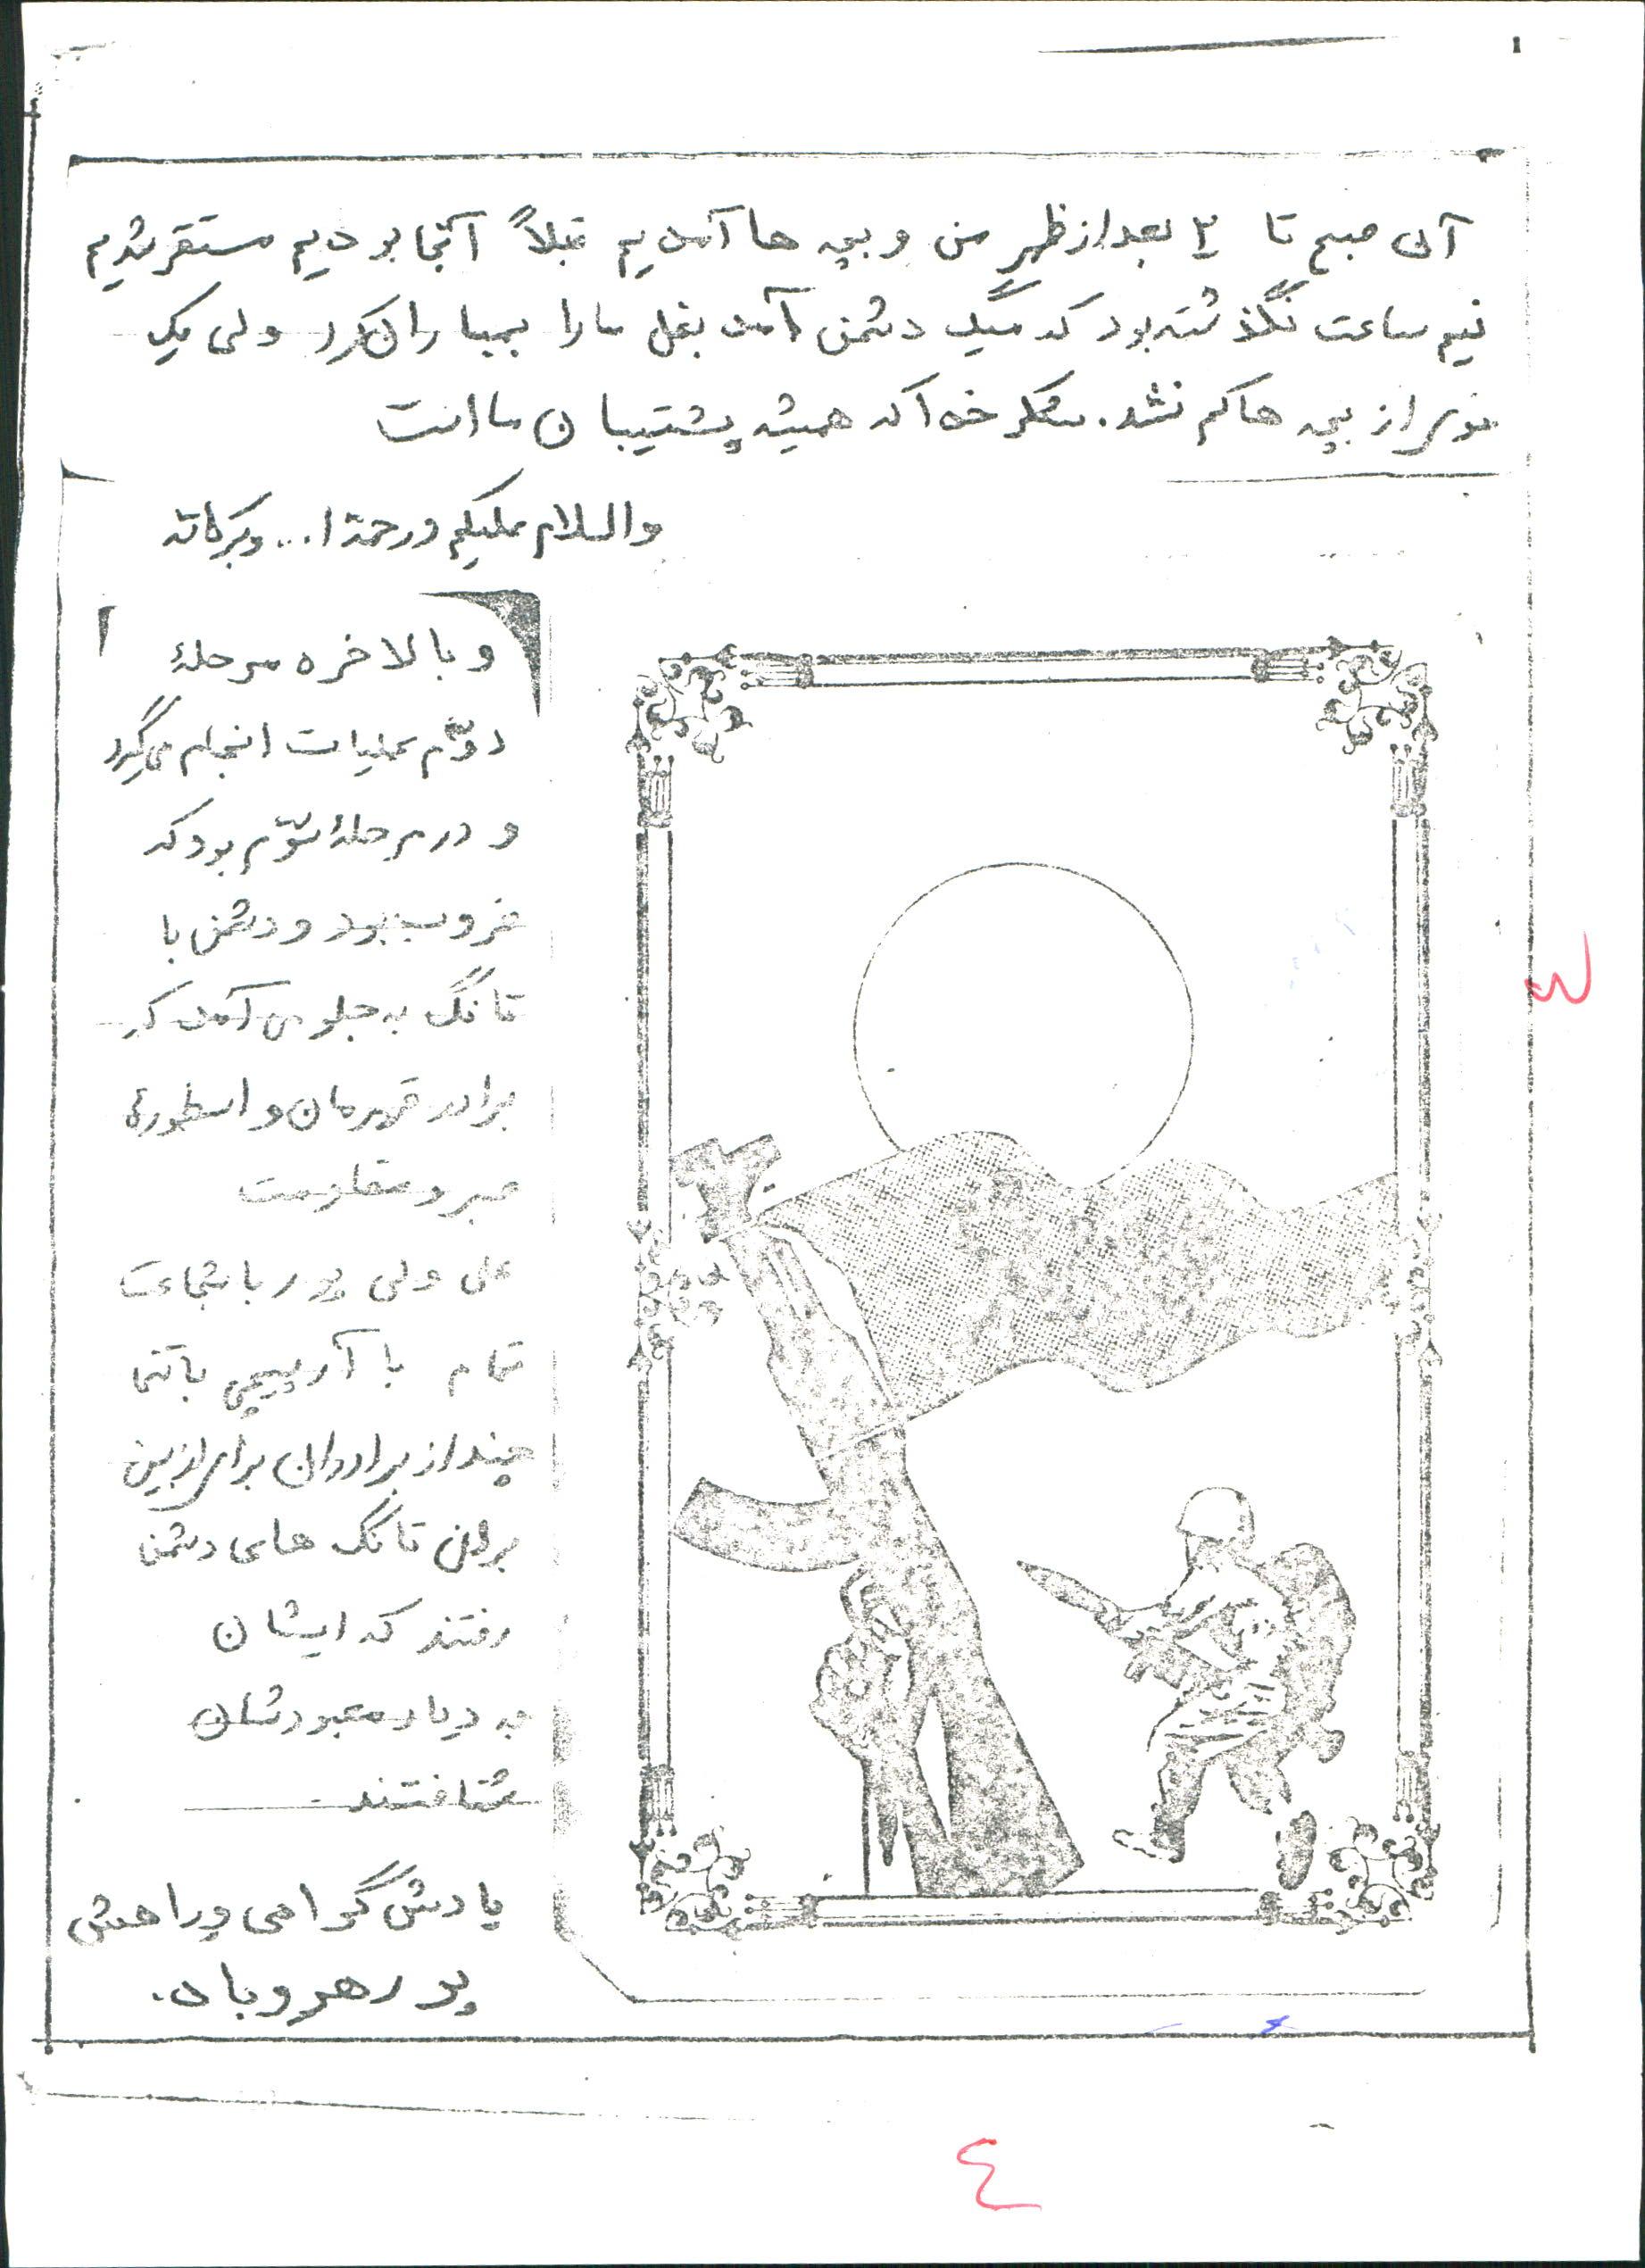 آن صبح تا ۳ بعد از ظهر من و بچه ها آمدیم قبلاً آنجا بودیم مستقر شدیم
نیم ساعت نگذشته بود که میگ دشمن آمد بغل ما را بمباران کرد ولی یک
موی از بچه ها کم نشد. شکر خدا که همیشه پشتیبان ما است
والسلام علیکم و رحمة ا... وبرکاته
و بالاخره مرحلهٔ
دوّم عملیات انجام می‌گیرد
و در مرحلهٔ سوّم بود که
غروب بود و دشمن با
تانک به جلو می آمد که
برادر قهرمان و اسطورهٔ
صبر و مقاومت
علی ولی پور با شجاعت
تمام با آرپیجی با تنی
چند از برادران برای از بین
بردن تانک های دشمن
رفتند که ایشان
به دیار معبودشان
شتافتند
یادش گرامی و راهش
پر رهرو باد.
٤